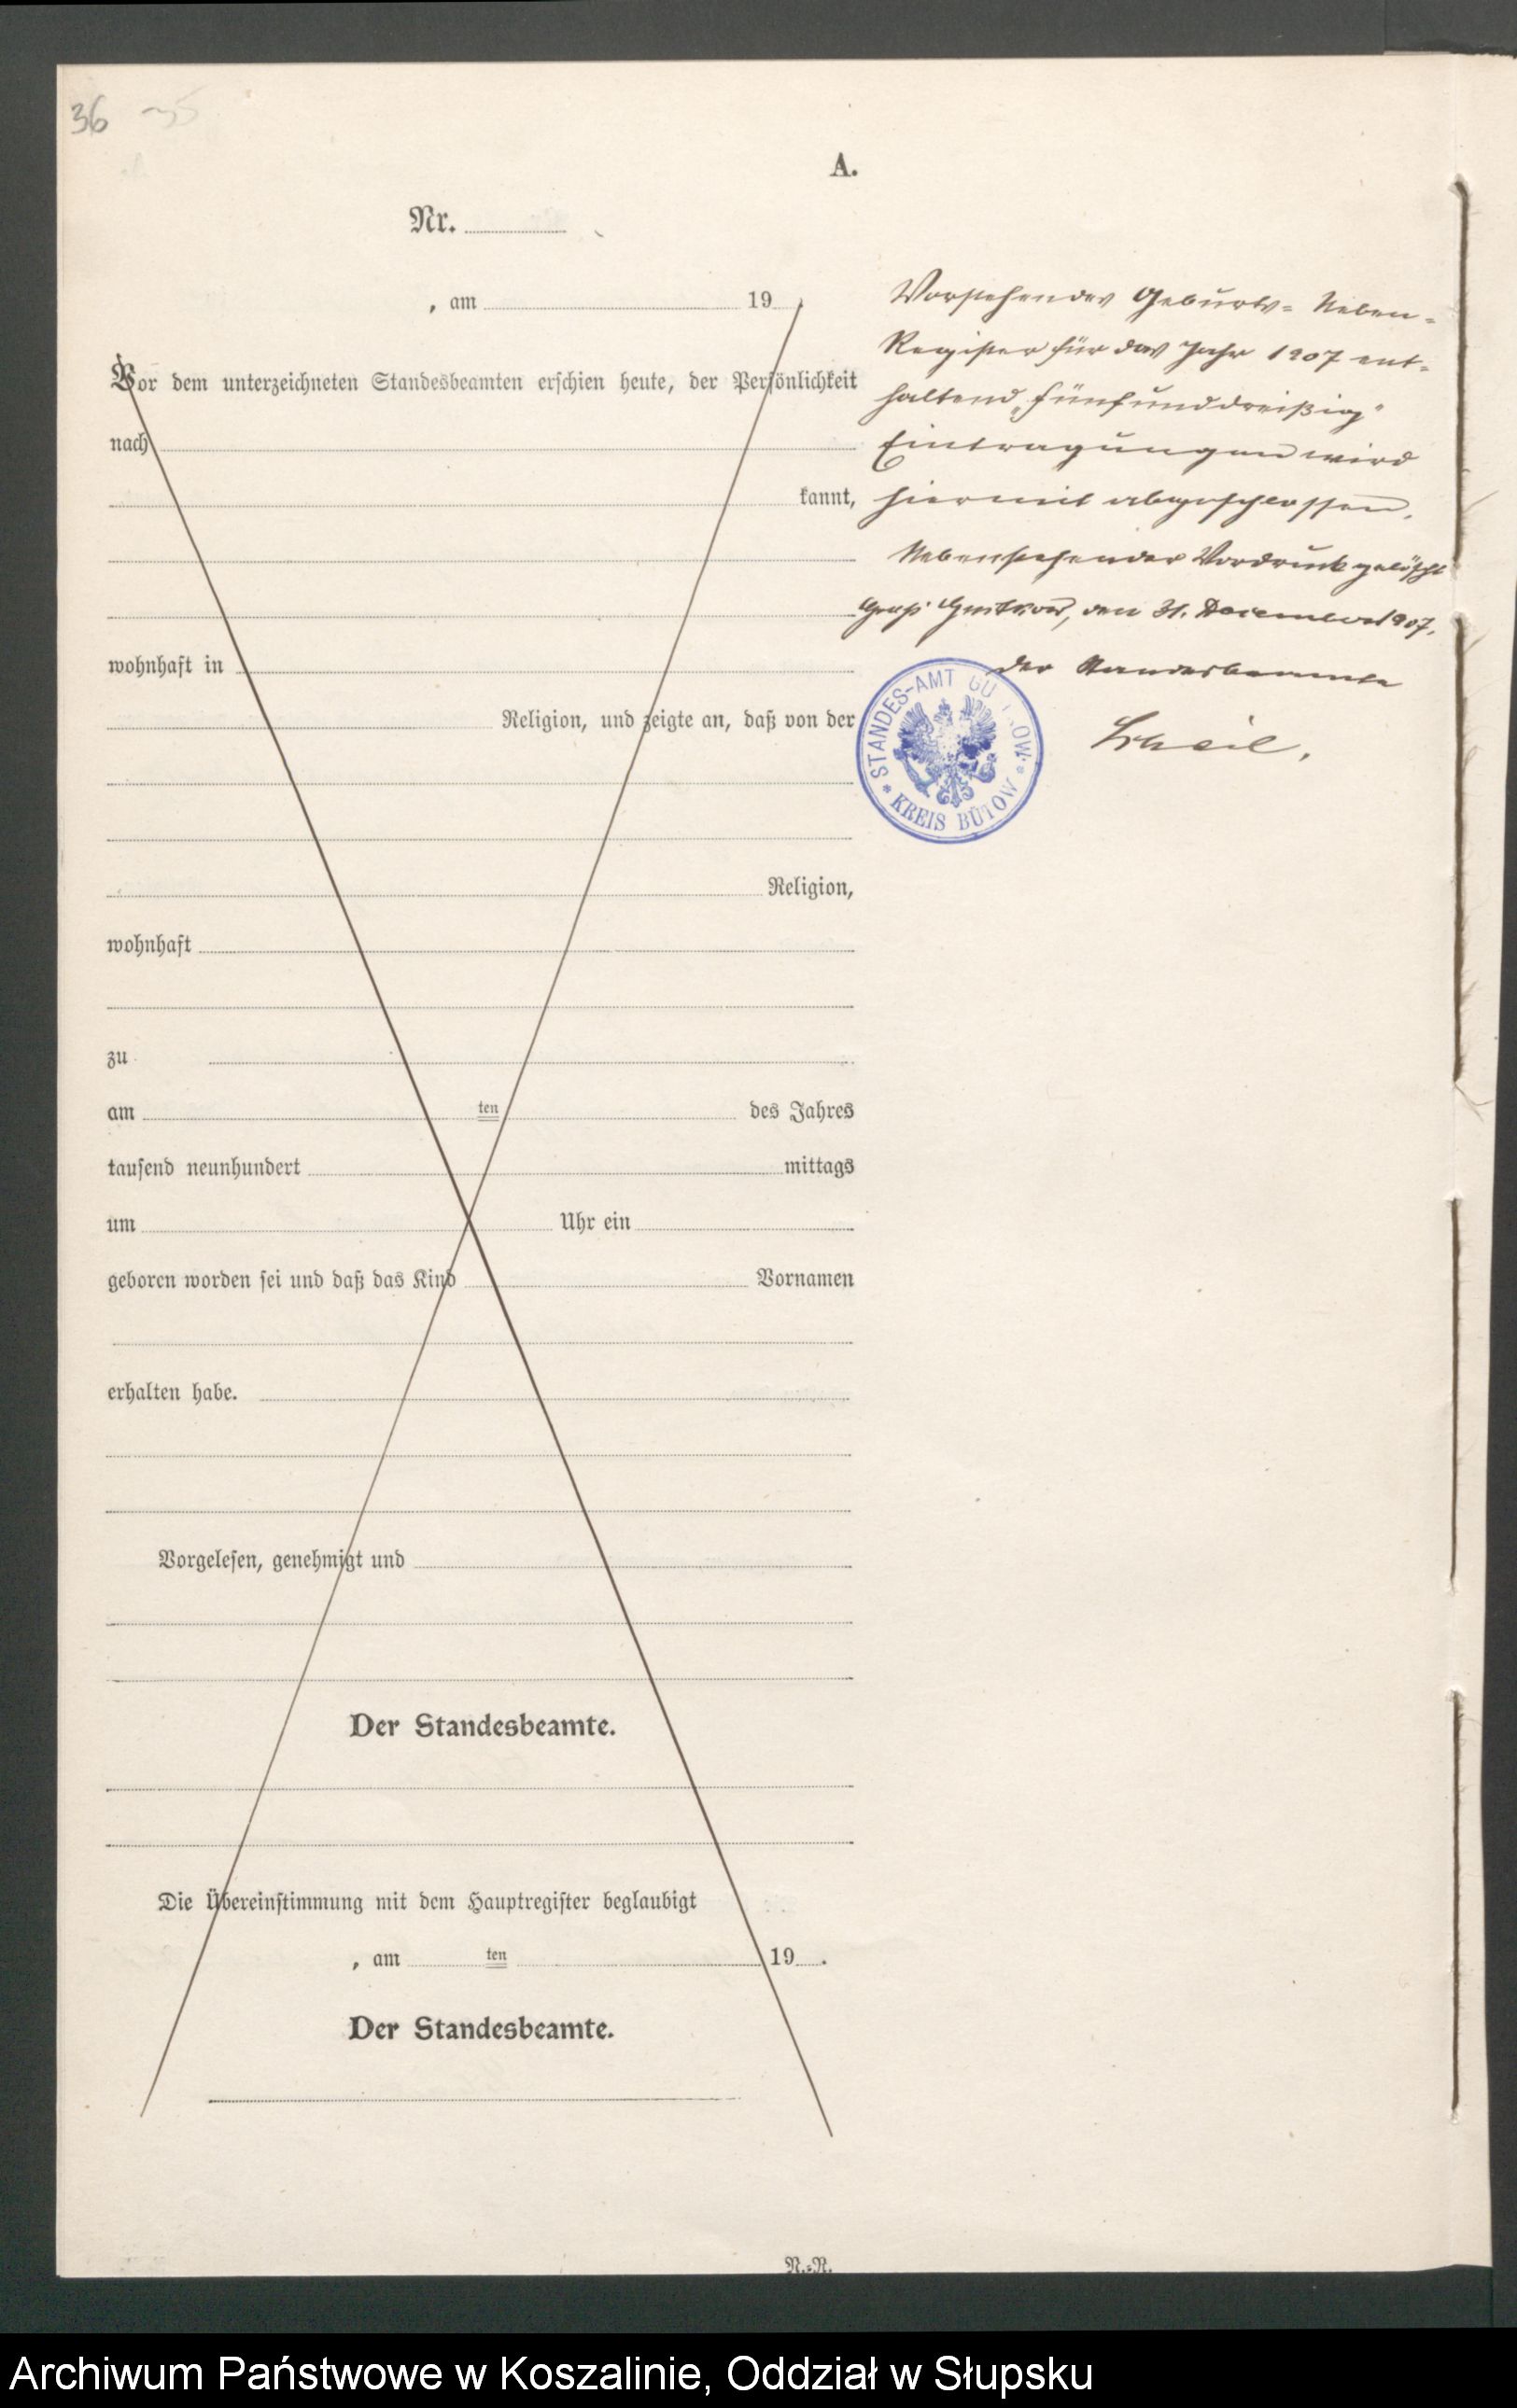 36
A.
Nr.
, am 19
Vor dem unterzeichneten Standesbeamten erschien heute, der Persönlichkeit
nach
kannt,
wohnhaft in
Religion, und zeigte an, daß von der
Religion,
wohnhaft
zu
am ten des Jahres
tausend neunhundert mittags
um Uhr ein
geboren worden sei und daß das Kind Vornamen
erhalten habe.
Vorgelesen, genehmigt und
Der Standesbeamte.
Die Übereinstimmung mit dem Hauptregister beglaubigt
, am ten 19 .
Der Standesbeamte.
N.-R.
Vorstehendes Geburts- Neben-
Register für das Jahr 1907 ent-
haltend „fünfunddreißig“
Eintragungen wird
hiermit abgeschlossen.
Nebenstehender Vordruck gelöscht
Groß, den 31. December 1907.
Der Standesbeamte
STANDES-AMT
* KREIS BÜTOW *
Archiwum Państwowe w Koszalinie, Oddział w Słupsku